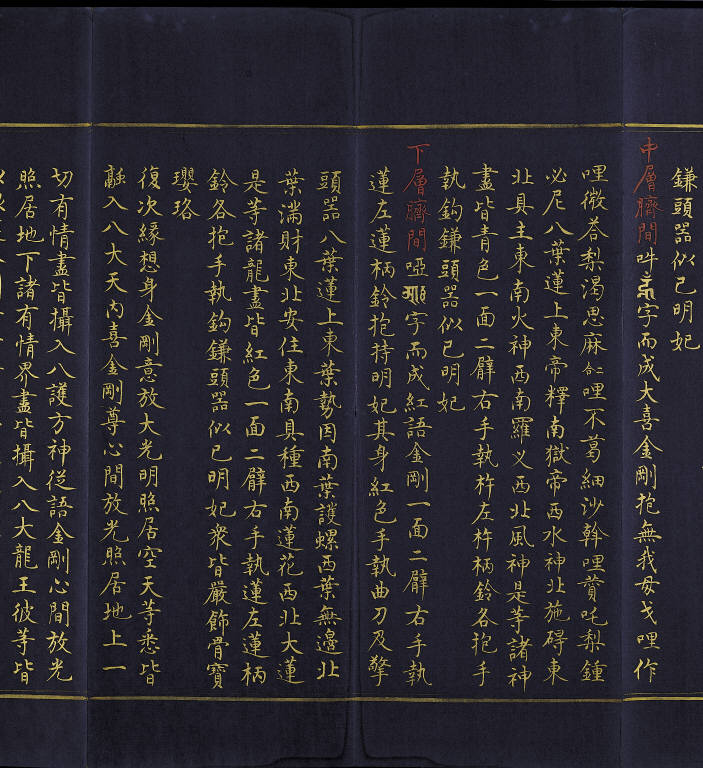 鎌頭器似已明妃
中層臍間吽字而成大喜金剛抱無我母戈哩作
哩微荅梨渴思麻仁哩不葛細沙斡哩賛叱梨鍾
必尼八葉蓮上東帝釋南獄帝西水神北施碍東
北具主東南火神西南羅义西北風神是等諸神
盡皆青色一面二臂右手執杵左杵柄鈴各抱手
執鈎鎌頭器似已明妃
下層臍間啞字而成紅語金剛一面二臂右手執
蓮左蓮柄鈴抱持明妃其身紅色手執曲刀及擎
頭器八葉蓮上東葉勢因南葉護螺西葉無邊北
葉满財東北安住東南具種西南蓮花西北大蓮
是等諸龍盡皆紅色一面二臂右手執蓮左蓮柄
鈴各抱手執鈎鎌頭器似已明妃衆皆嚴飾骨寶
瓔珞
復次緣想身金剛意放大光明照居空天等悉皆
融入八大天内喜金剛尊心間放光照居地上一
切有情盡皆攝入八護方神從語金剛心間放光
照居地下諸有情界盡皆攝入八大龍王彼等皆